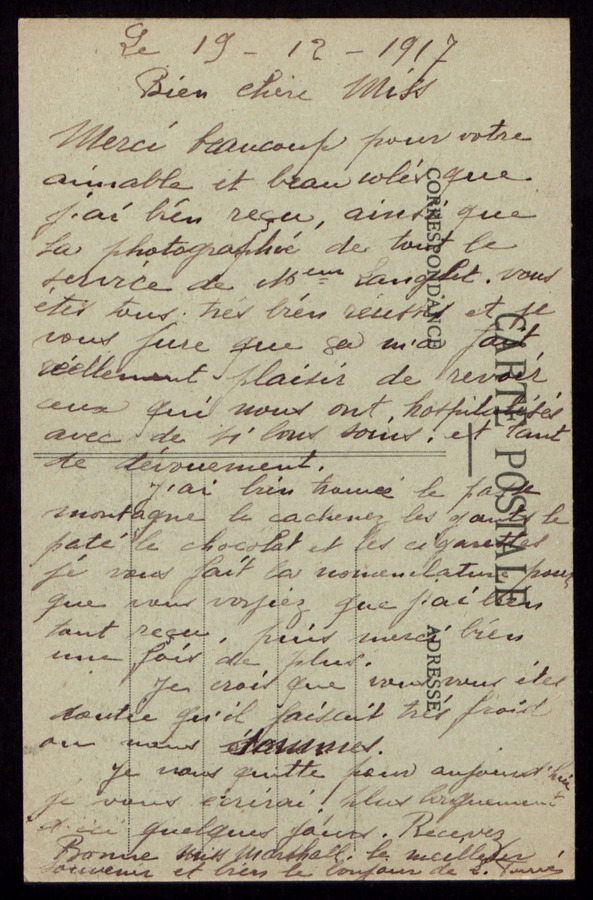 Le 19 - 12 - 1917
Bien chère Miss
Merci beaucoup pour votre
aimable et beau colis que
j'ai bien reçu, ainsi que
la photographie de tout le
service de Mme Langlet. vous
êtes tous très bien réussis et je
vous jure que ça m'a fait
réellement plaisir de revoir
ceux qui nous ont hospitalisés
avec de si bons soins, et tant
de dévouement.
J'ai bien trouvé le passe
montagne le cachenez les gants le
paté le chocolat et les cigarettes
je vous fait la nomenclature pour
que vous voyiez que j'ai bien
tout reçu, puis merci bien
une fois de plus.
Je crois que vous vous êtes
doutée qu'il faisait très froid
ou nous sommes.
Je vous quitte pour aujourd'hui
je vous écrirai plus longuement
d'ici quelques jours. Recevez
Bonne Miss Marshall. le meilleur
souvenir et bien le bonjour de
CORRESPONDANCE
CARTE POSTALE
ADRESSE